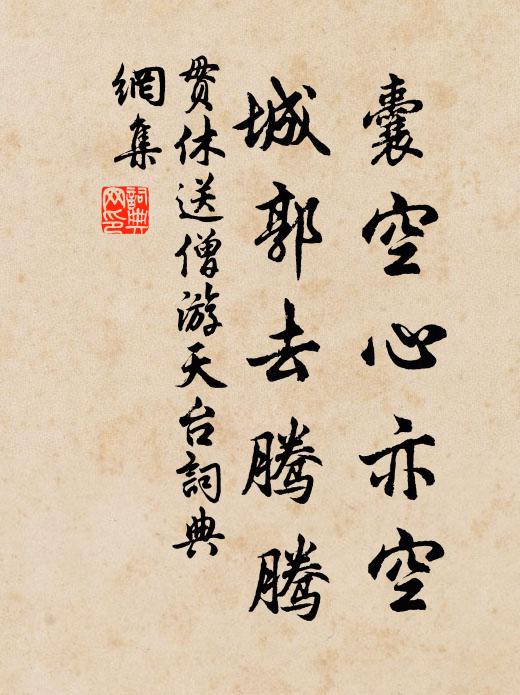 囊空心亦空
城郭去腾腾
贯休送僧游天台词典
網集
詞典
网印